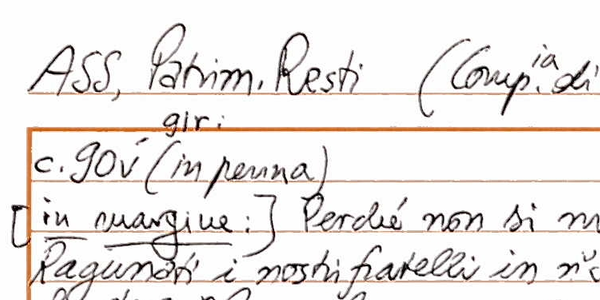 ASS, Patrim. Resti (Comp.ia di
gir:
c. 90v (in penna)
[in margine:] Perché non si m
Ragunati i nostri fratelli in n